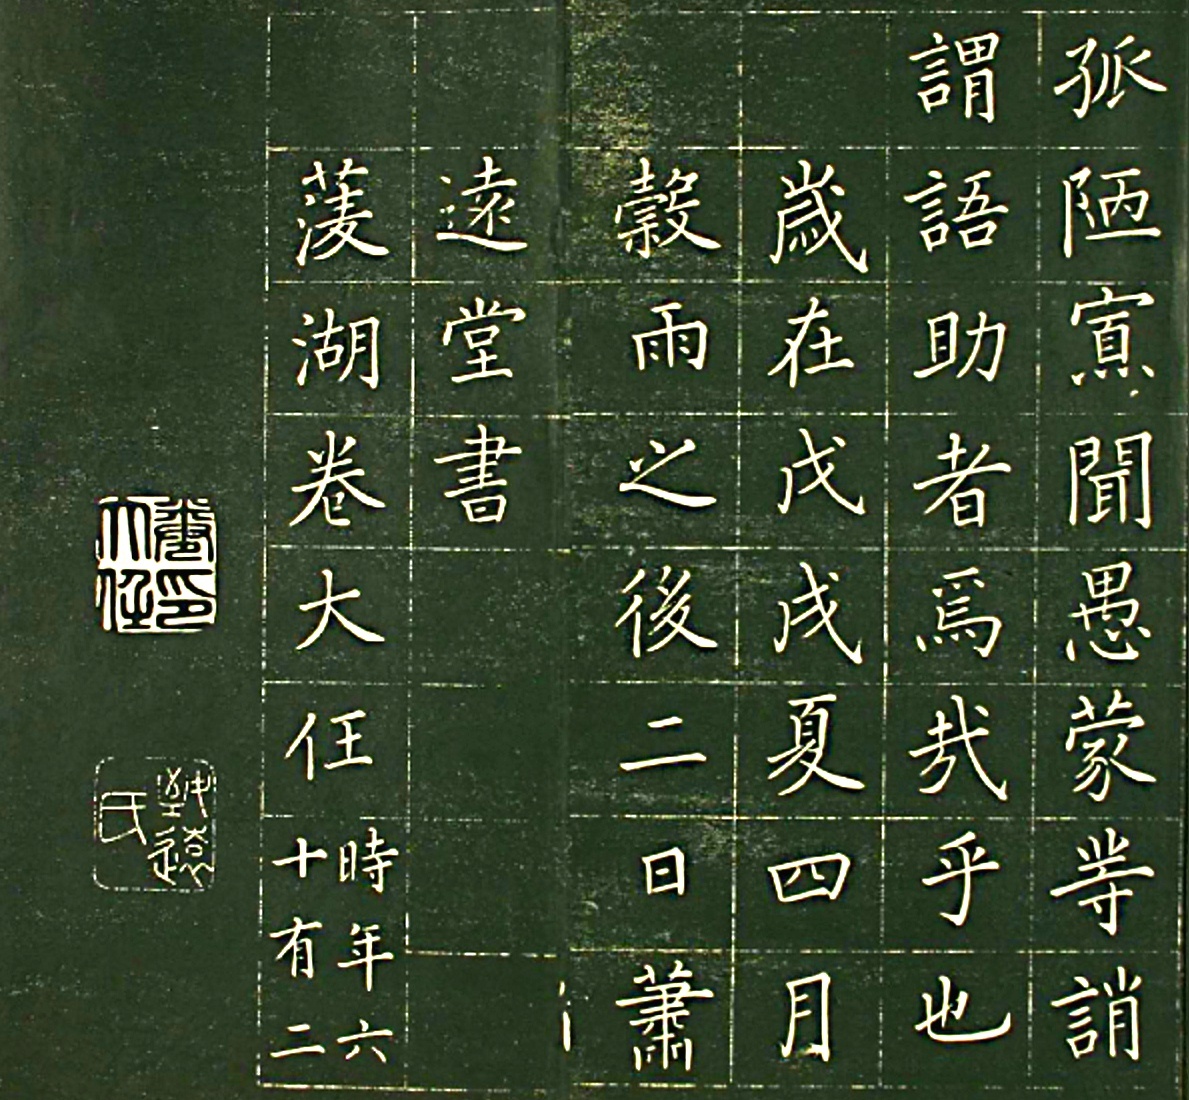 孤陋寡聞愚蒙等誚
謂語助者焉哉乎也
歲在戊戌夏四月
穀雨之後二日蕭
遠堂書
蓤湖卷大任
時年六
十有二